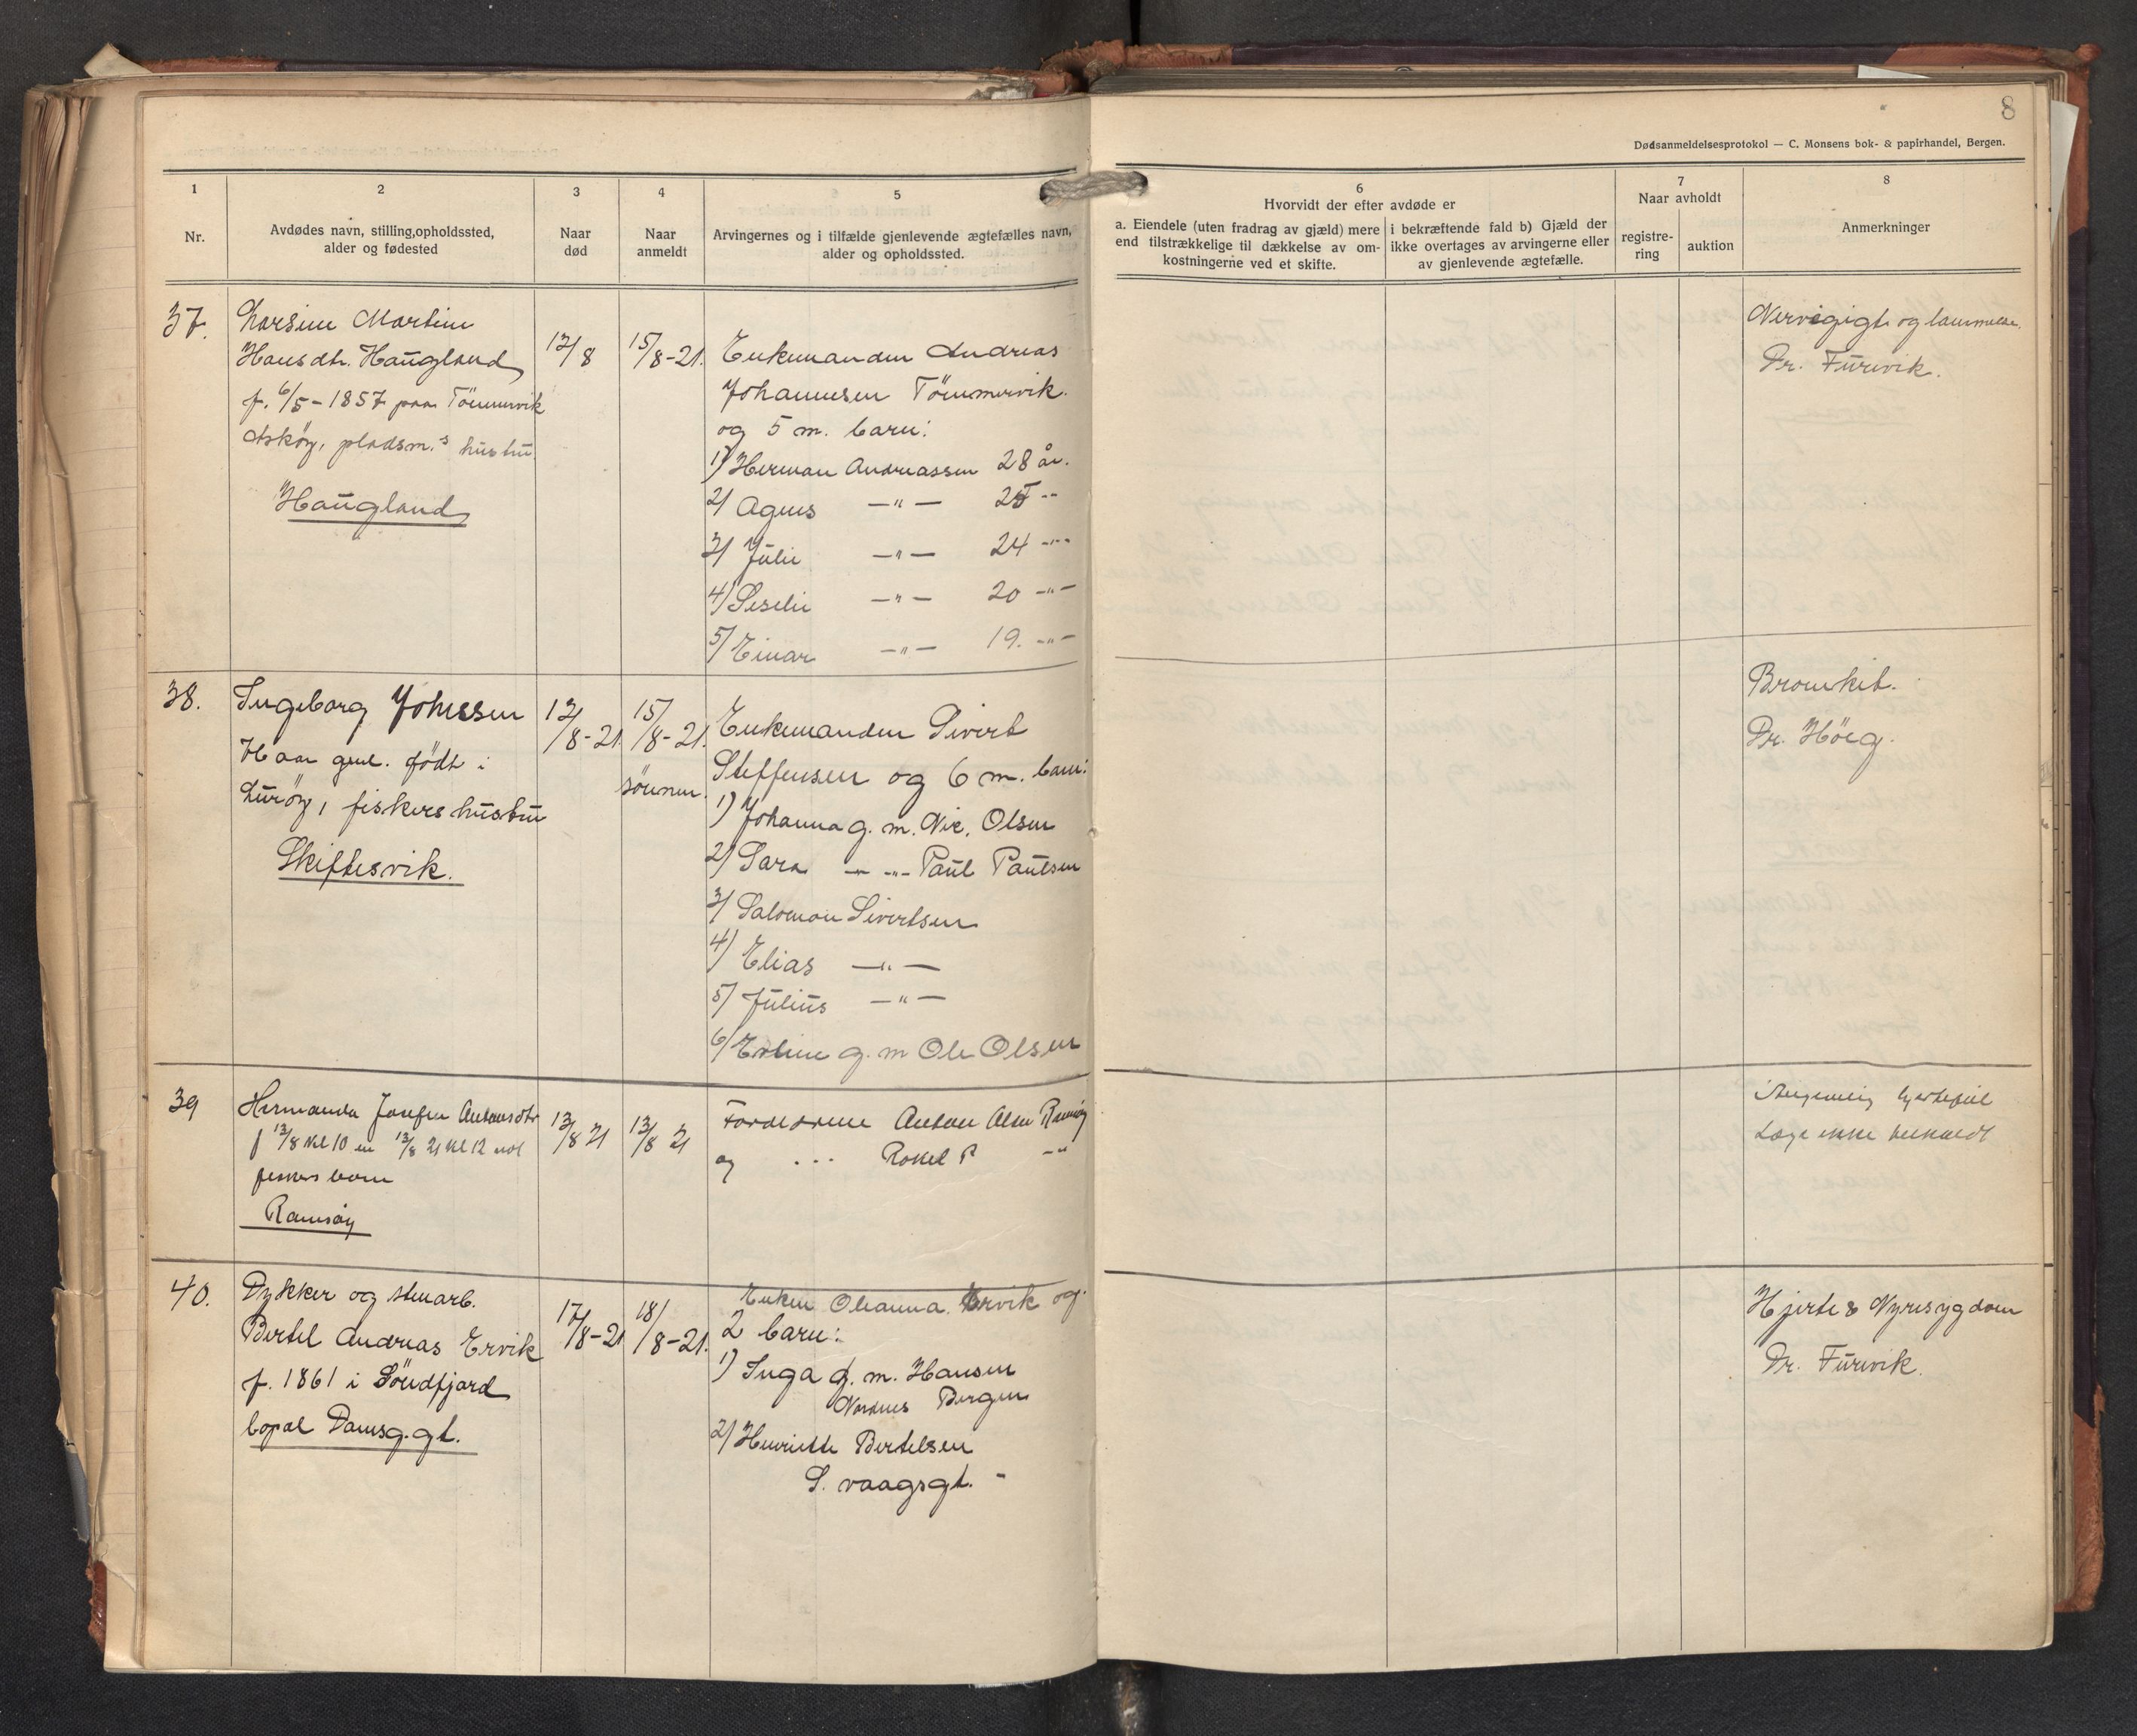 8
Dødsanmeldelsesprotokol — C. Monsens bok- & papirhandel, Bergen.
1
2
3
4
5
6
7
8
Nr.
Avdødes navn, stilling, opholdssted,
alder og fødested
Naar
død
Naar
anmeldt
Arvingernes og i tilfælde gjenlevende ægtefælles navn,
alder og opholdssted.
Hvorvidt der efter avdøde er
a. Eiendele (uten fradrag av gjæld) mere
end tilstrækkelige til dækkelse av om-
kostningerne ved et skifte.
i bekræftende fald b) Gjæld der
ikke overtages av arvingerne eller
av gjenlevende ægtefælle.
Naar avholdt
registre-
ring
auktion
Anmerkninger
37.
Larsine Martine
Hansdtr. Haugland
f. 6/5 - 1857 paa Tömmervik
Asköy, pladsm.s hustru
Haugland
12/8
15/8-21.
Enkemanden Andreas
Johannesen Tömmervik.
og 5 m. barn:
1) Herman Andreassen 28 år.
2) Agnes —"— 25 "
3) Julie —"— 24 —"—
4) Seselie —"— 20 —"—
5) Einar —"— 19. —"—
Nervegigt og lammelse.
Dr. Furuvik.
38.
Ingeborg Johnssen
aar gml. født i
Luröy, fiskers hustru
Skiftesvik.
12/8-21
15/8-21.
sönnen.
Enkemanden Sivert
Steffensen og 6 m. barn:
1) Johanna g. m. Nic. Olsen
2) Sara — „— Paul Paulsen
3) Salomon Sivertsen
4) Elias —"—
5) Julius —"—
6) Eline g. m Ole Olsen
Bronkit.
Dr. Höeg.
39
Hermanda Josefine Antonsdtr
f 12/8 kl 10 em 13/8 21 kl 12 nat
fiskers barn
Ramsøy
13/8 21
13/8 21
Forældrene Anton Olsen Ramsöy
og ... Rakel R —"
hjertefeil
Læge ikke tilkaldt
40.
Dykker og stenarb.
Bertel Andreas Ervik
f. 1861 i Söndfjord
bopæl Damsg.gt.
17/8-21
18/8-21.
Enken Oleanna Ervik og
2 barn:
1) Inga g. m. Hansen
Nordnes Bergen
2) Henriette Bertelsen
S. vaagsgt. -
Hjerte & Nyresygdom
Dr. Furuvik.